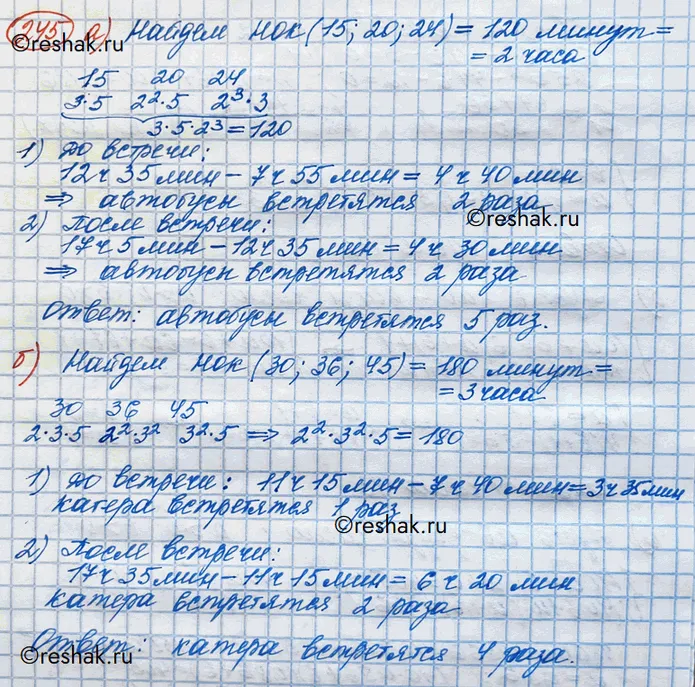 245 а) Найдем НОК (15; 20; 24) = 120 минут =
= 2 часа
15 20 24
3·5 2²·5 2³·3
3·5·2³ = 120
1) До встречи:
12ч 35мин – 7ч 55мин = 4ч 40мин
⇒ автобусы встретятся 2 раза
2) После встречи:
17ч 5мин – 12ч 35мин = 4ч 30мин
⇒ автобусы встретятся 2 раза
Ответ: автобусы встретятся 5 раз.
б) Найдем НОК (30; 36; 45) = 180 минут =
= 3 часа
30 36 45
2·3·5 2²·3² 3²·5 ⇒ 2²·3²·5 = 180
1) До встречи: 11ч 15мин – 7ч 40мин = 3ч 35мин
катера встретятся 1 раз
2) После встречи:
17ч 35мин – 11ч 15мин = 6ч 20мин
катера встретятся 2 раза
Ответ: катера встретятся 4 раза.
©reshak.ru
©reshak.ru
©reshak.ru
©reshak.ru